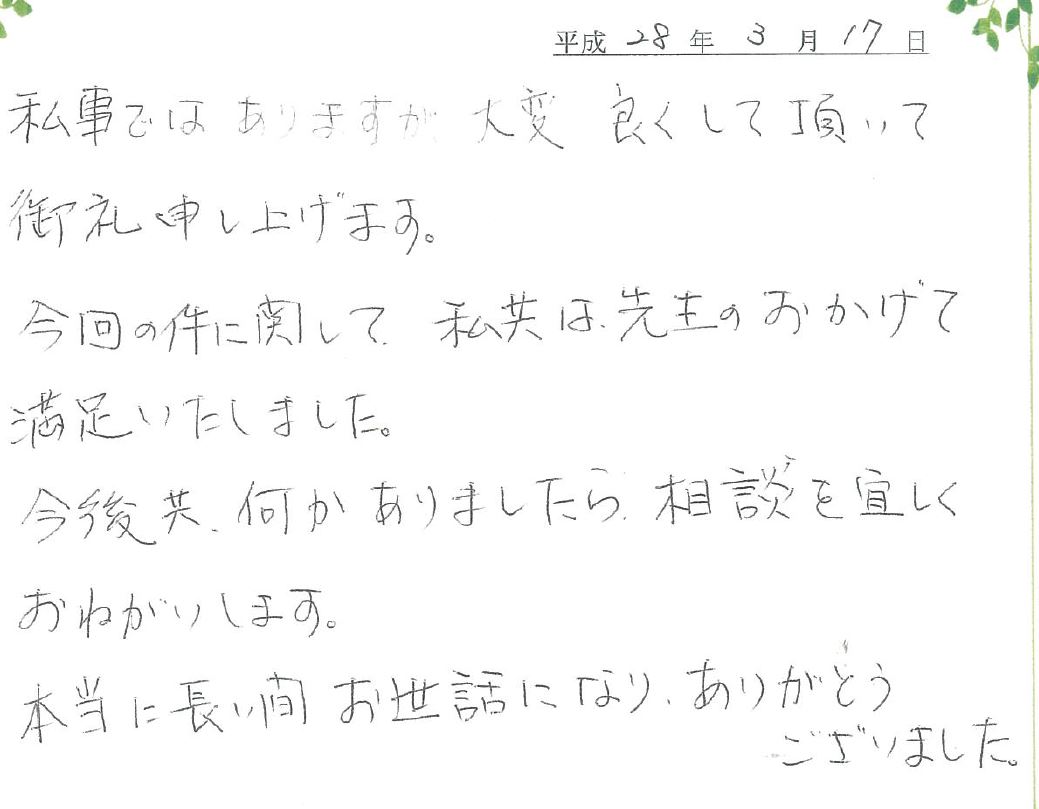 平成 28 年 3 月 17 日
私事ではありますが 大変 良くして頂いて
御礼申し上げます。
今回の件に関して、私共は、先生のおかげで
満足いたしました。
今後共、何かありましたら、相談を宜しく
おねがいします。
本当に長い間お世話になり、ありがとう
ございました。